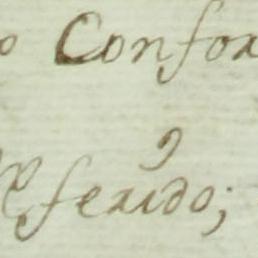 o Confor
Referido;